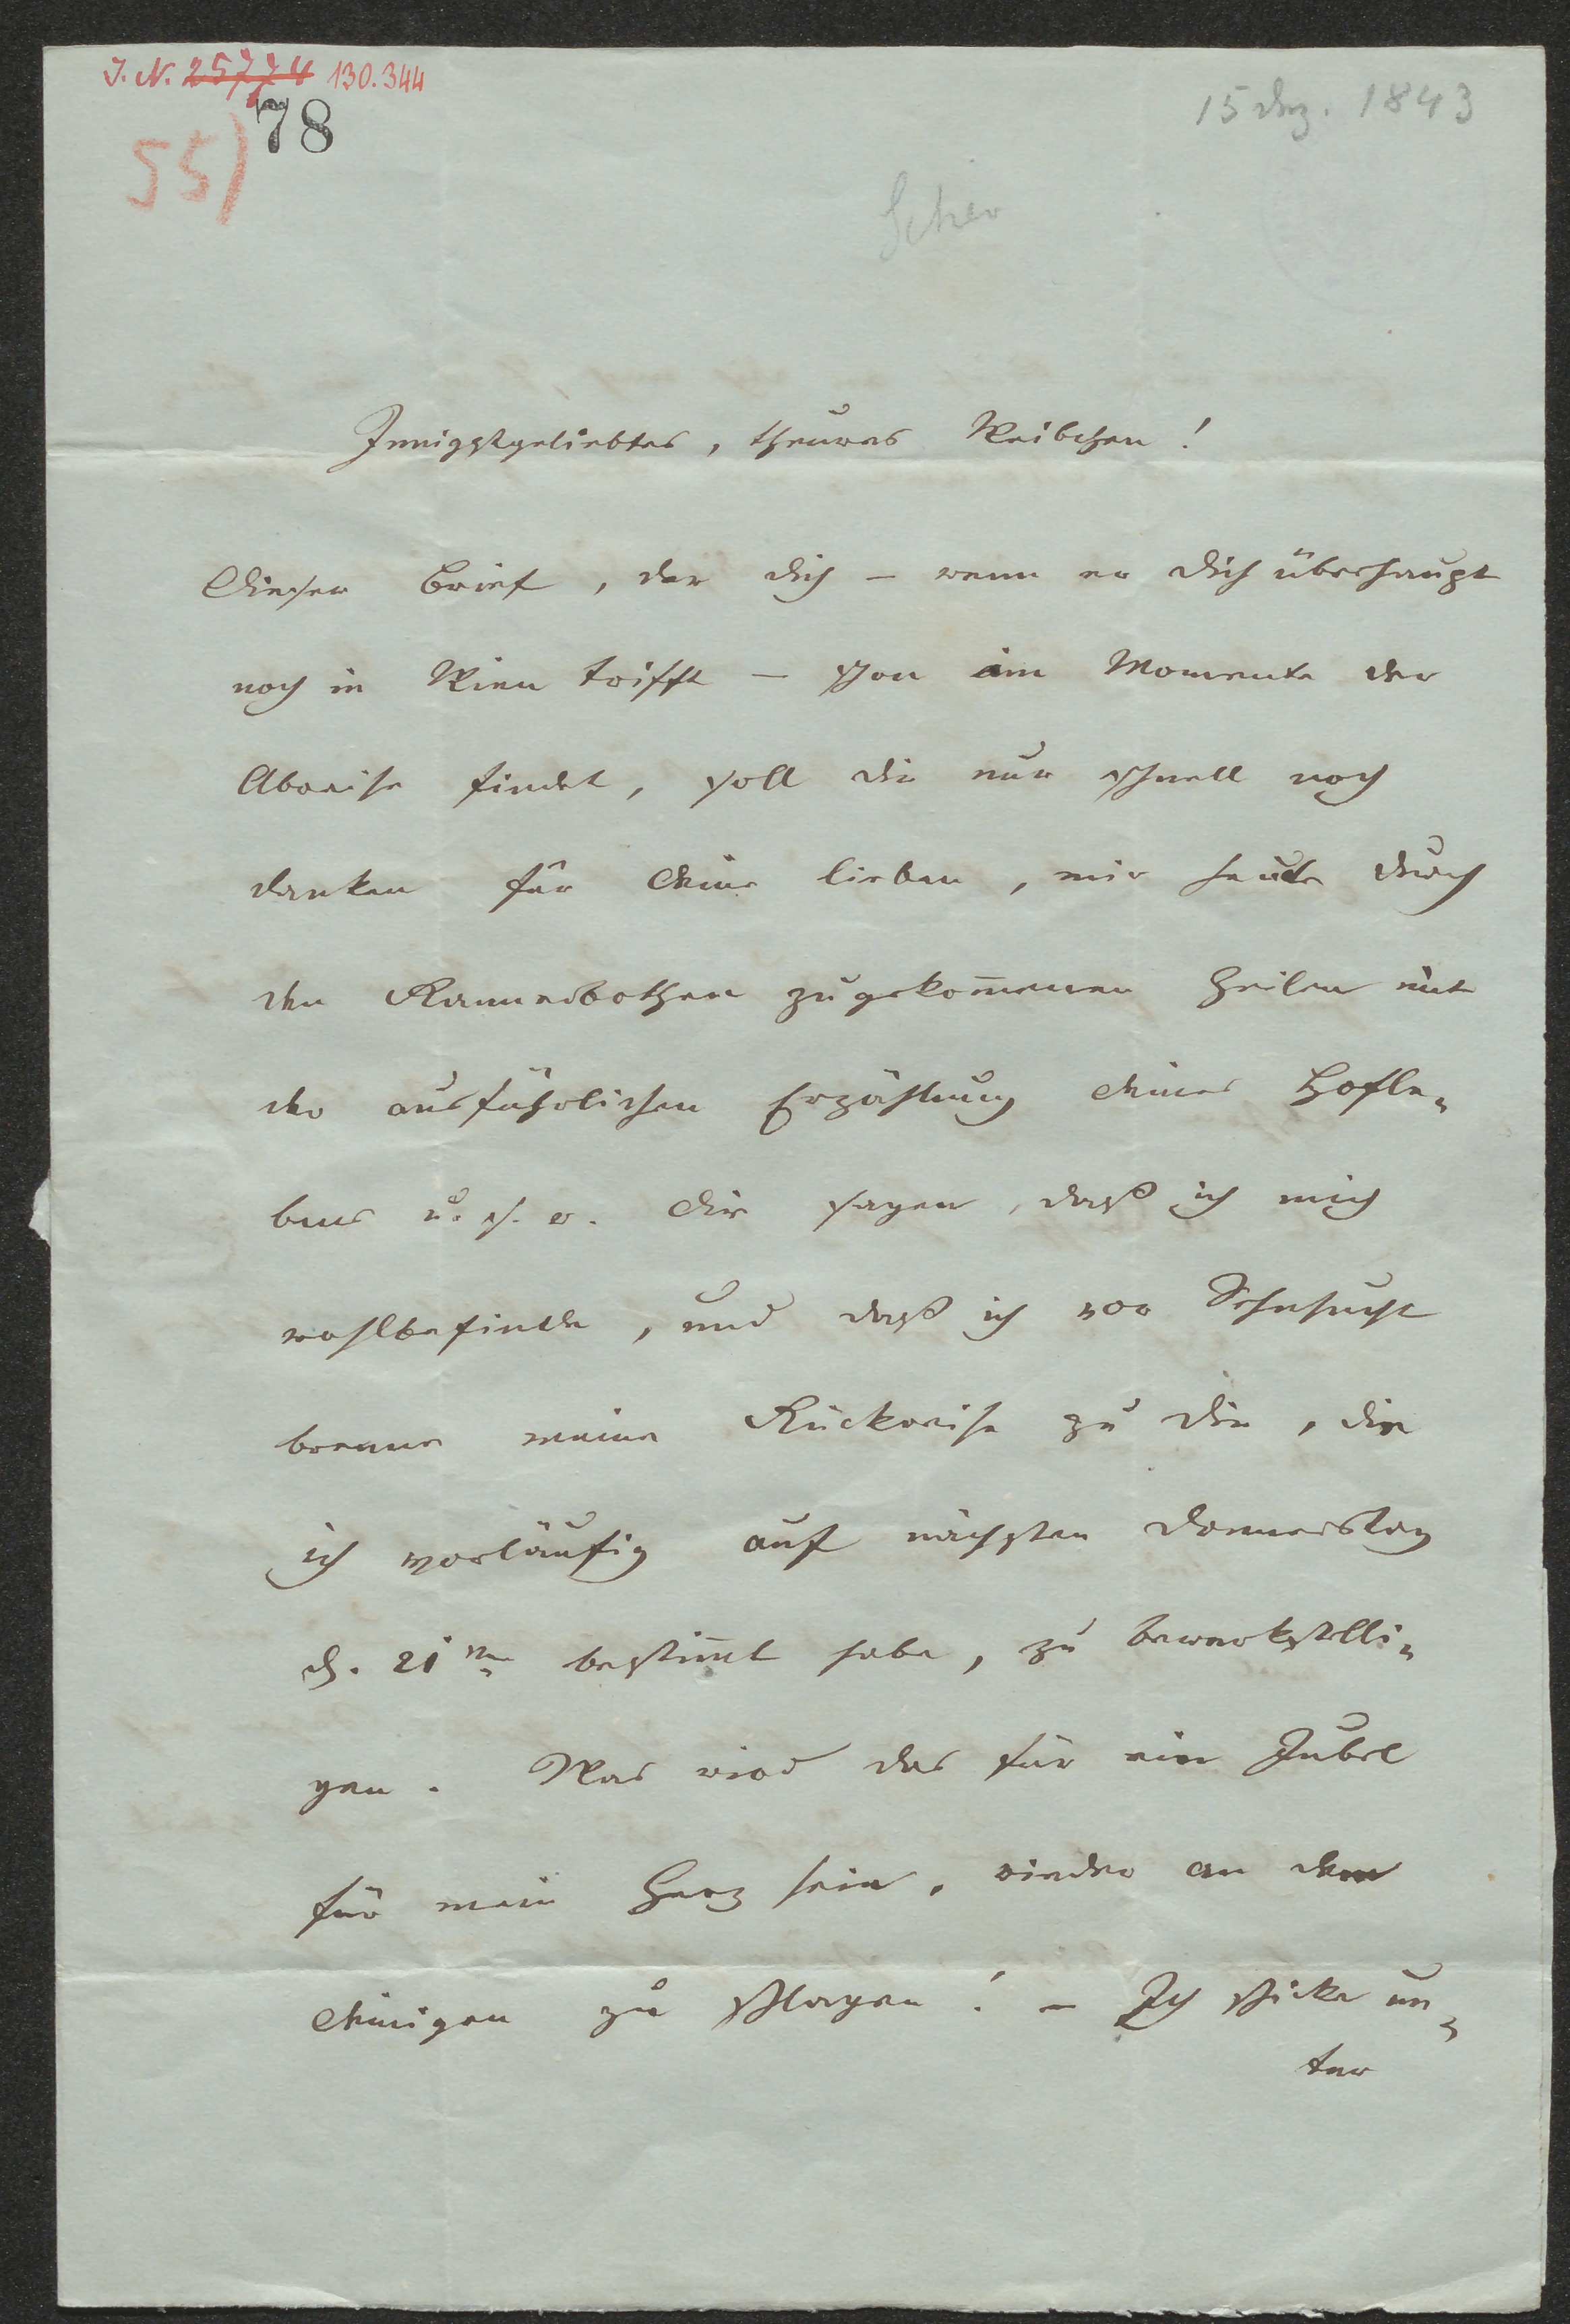 J. N. 25774 130.344
78
55)
15 Dez. 1843
Innigstgeliebtes, theures Weibchen!
Dieser Brief, der dich – wenn er dich überhaupt
noch in Wien trifft – schon im Momente der
Abreise findet, soll dir nur schnell noch
danken für deine lieben, mir heute durch
den Kammerbothen zugekom̅enen Zeilen mit
der ausführlichen Erzählung deines Hofle„
bens u. s. w. dir sagen, daß ich mich
wohlbefinde, und daß ich vor Sehnsucht
brenne meine Rückreise zu dir, die
ich vorläufig auf nächsten Donnerstag
d. 21ten bestim̅t habe, zu bewerkstelli„
gen. Was wird das für ein Jubel
für mein Herz sein, wieder an dem
deinigen zu schlagen! – Ich schicke un„
ter